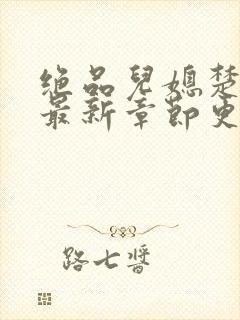 绝品兒媳楚
最新章節更
路七醬